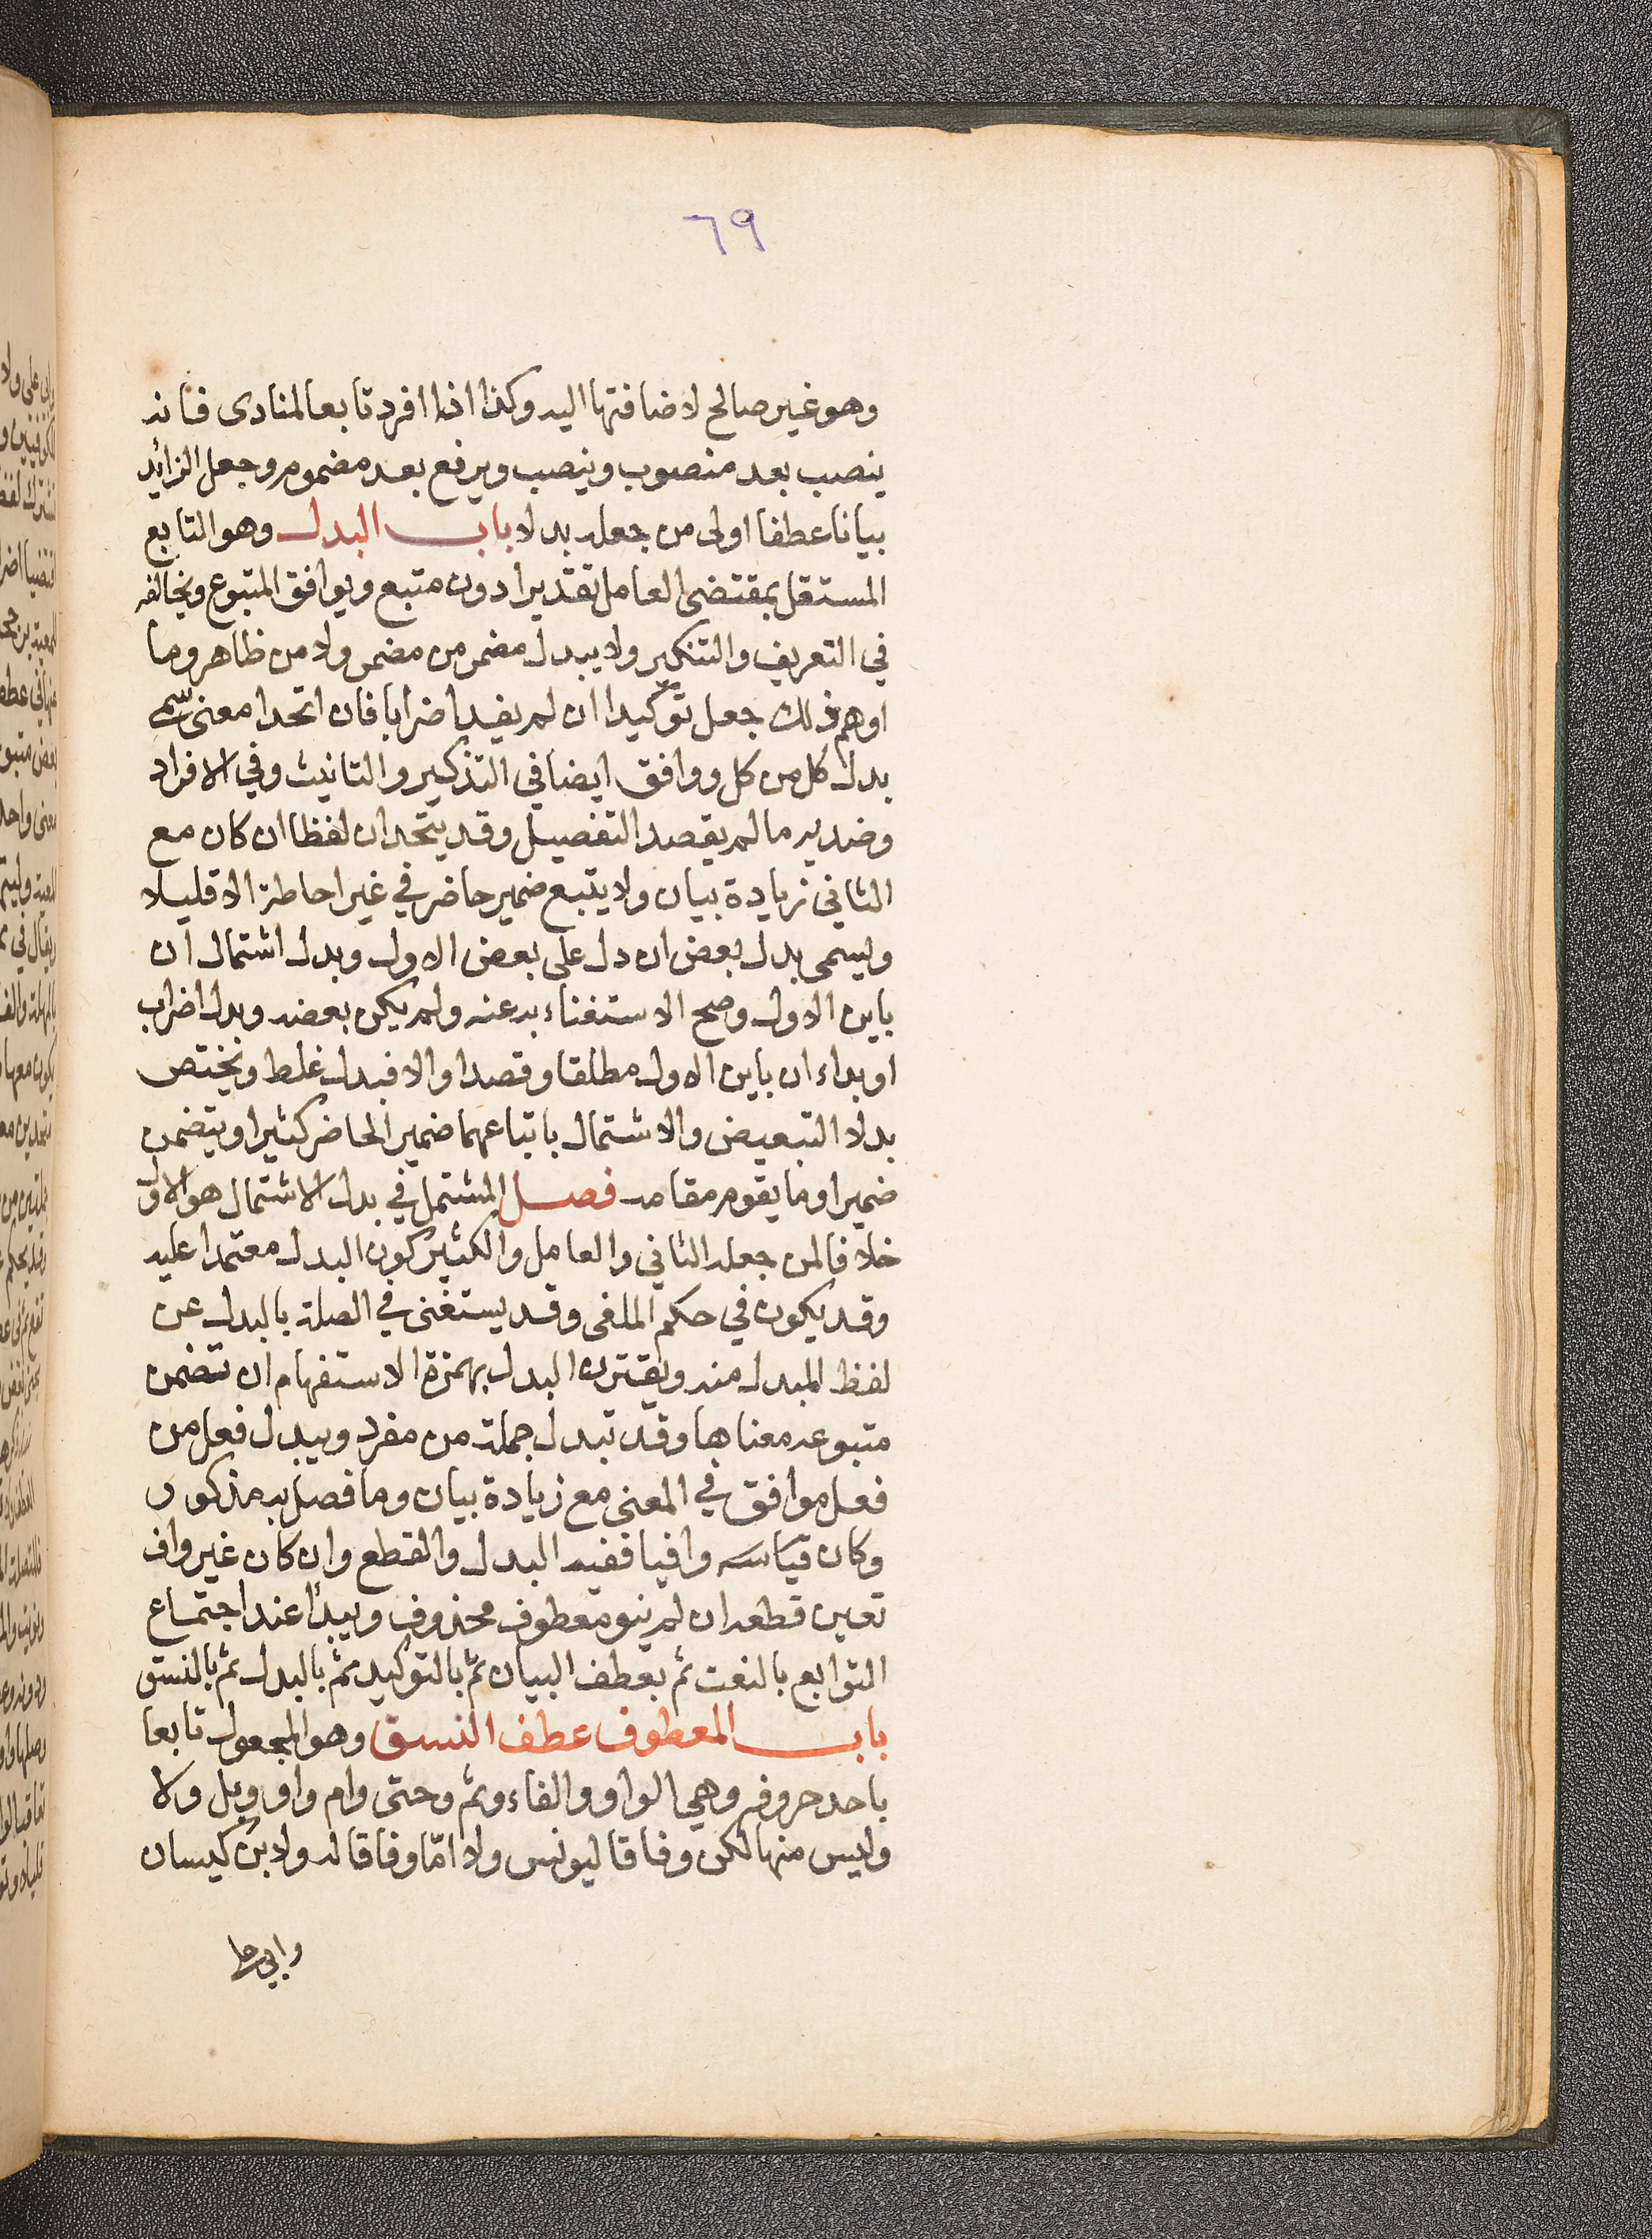 ٦٩
وهو غير صالح لاضافتها اليه وكذا اذا افرد تابعا لمنادى فانه
ينصب بعد منصوب وينصب ويرفع بعد مضموم وجعل الزائد
بيانا عطفا اولى من جعله بدلا باب البدل وهو التابع
المستقل بمقتضى العامل تقديرا دون متبع ويوافق المتبوع ويخالفه
في التعريف والتنكير ولا يبدل مضمر من مضمر ولا من ظاهر وما
اوهم ذلك جعل توكيدا ان لم يفيد اضرابا فان اتحدا معنى سمي
بدل كل من كل ووافق ايضا في التذكير والتانيث وفي الافراد
وضديه ما لم يقصد التفصيل وقد يتحدان لفظا ان كان مع
الثاني زيادة بيان ولا يتبع ضمير حاضر في غير احاطة الا قليلا
ويسمى بدل بعض ان دل على بعض الاول وبدل اشتمال ان
باين الاول وصح الاستغناء به عنه ولم يكن بعضه وبدل اضراب
او بداء ان باين الاول مطلقا وقصدا والا فبدل غلط ويختص
بدلا التبعيض والاشتمال باتباعهما ضمير الحاضر كثيرا ويتضمن
ضميرا او ما يقوم مقامه فصل المشتمل في بدل الاشتمال هو الاول
خلافا لمن جعله الثاني والعامل والكثير كون البدل معتمدا عليه
وقد يكون في حكم الملغى وقد يستغنى في الصلة بالبدل عن
لفظ المبدل منه ويقترن البدل بهمزة الاستفهام ان تضمن
متبوعه معناها وقد تبدل جملة من مفرد ويبدل فعل من
فعل موافق في المعنى مع زيادة بيان وما فصل به مذكور
وكان قياسه وافيا ففيه البدل والقطع وان كان غير واف
تعين قطعه ان لم ينو معطوف محذوف ويبدأ عند اجتماع
التوابع بالنعت ثم بعطف البيان ثم بالتوكيد ثم بالبدل ثم بالنسق
باب المعطوف عطف النسق وهو المجعول تابعا
باحد حروفه وهي الواو والفاء وثم وحتى وام واو وبل ولا
وليس منها لكن وفاقا ليونس ولا امّا وفاقا له ولابن كيسان
وابي علي